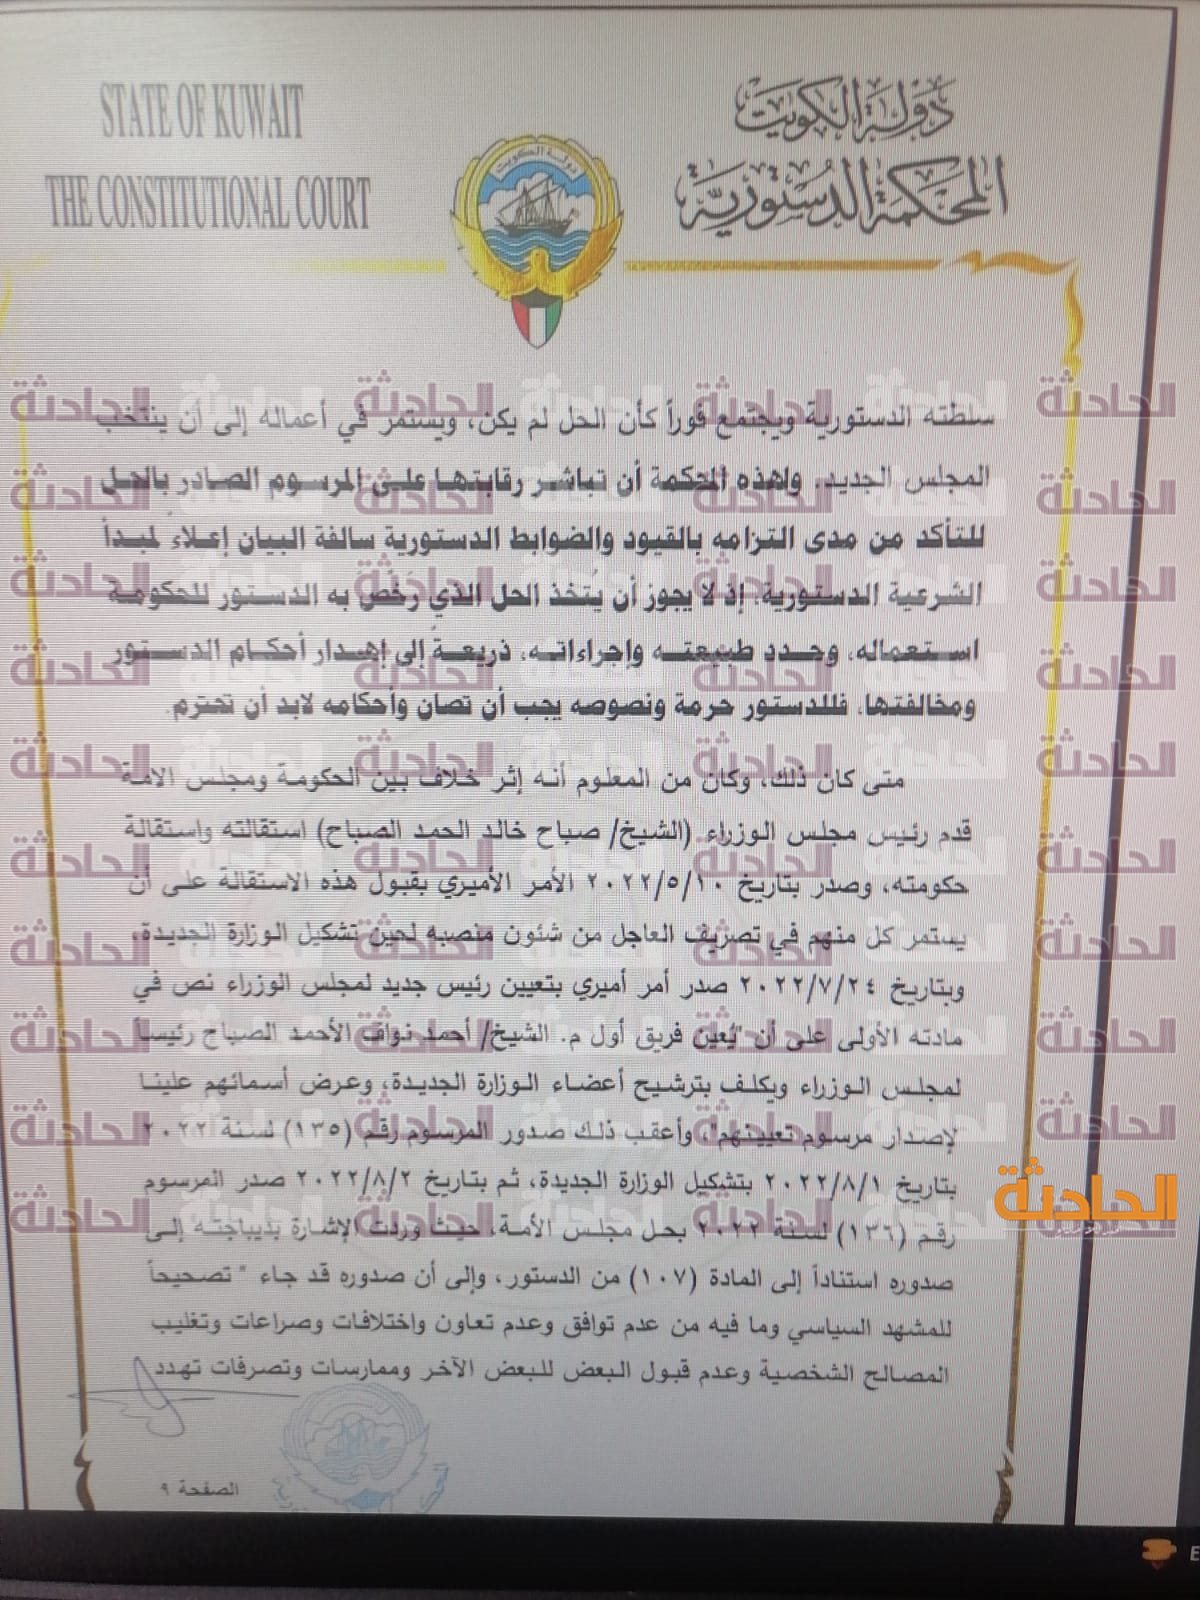 STATE OF KUWAIT
THE CONSTITUTIONAL COURT
دولة الكويت
المحكمة الدستورية
دولة الكويت
سلطته الدستورية ويجتمع فوراً كأن الحل لم يكن، ويستمر في أعماله إلى أن ينتخب
المجلس الجديد. ولهذه المحكمة أن تباشر رقابتها على المرسوم الصادر بالحل
للتأكد من مدى التزامه بالقيود والضوابط الدستورية سالفة البيان إعلاءً لمبدأ
الشرعية الدستورية، إذ لا يجوز أن يُتخذ الحل الذي رَخّص به الدستور للحكومة
استعماله، وحدد طبيعته وإجراءاته، ذريعةً إلى إهدار أحكام الدستور
ومخالفتها، فللدستور حرمة ونصوصه يجب أن تصان وأحكامه لابد أن تحترم.
متى كان ذلك، وكان من المعلوم أنه إثر خلاف بين الحكومة ومجلس الأمة
قدم رئيس مجلس الوزراء (الشيخ/ صباح خالد الحمد الصباح) استقالته واستقالة
حكومته، وصدر بتاريخ ٢٠٢٢/٥/١٠ الأمر الأميري بقبول هذه الاستقالة على أن
يستمر كل منهم في تصريف العاجل من شئون منصبه لحين تشكيل الوزارة الجديدة،
وبتاريخ ٢٠٢٢/٧/٢٤ صدر أمر أميري بتعيين رئيس جديد لمجلس الوزراء نص في
مادته الأولى على أن "يُعين فريق أول م. الشيخ/ أحمد نواف الأحمد الصباح رئيساً
لمجلس الوزراء ويكلف بترشيح أعضاء الوزارة الجديدة، وعرض أسمائهم علينا
لإصدار مرسوم تعيينهم"، وأعقب ذلك صدور المرسوم رقم (١٣٥) لسنة ٢٠٢٢
بتاريخ ٢٠٢٢/٨/١ بتشكيل الوزارة الجديدة، ثم بتاريخ ٢٠٢٢/٨/٢ صدر المرسوم
رقم (١٣٦) لسنة ٢٠٢٢ بحل مجلس الأمة، حيث وردت الإشارة بديباجته إلى
صدوره استناداً إلى المادة (١٠٧) من الدستور، وإلى أن صدوره قد جاء " تصحيحاً
للمشهد السياسي وما فيه من عدم توافق وعدم تعاون واختلافات وصراعات وتغليب
المصالح الشخصية وعدم قبول البعض للبعض الآخر وممارسات وتصرفات تهدد
الصفحة ٩
الحادثة